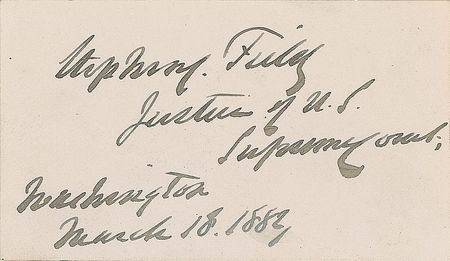 Stephen J. Field
Justice of U.S.
Supreme Court,
Washington
March 18. 1889